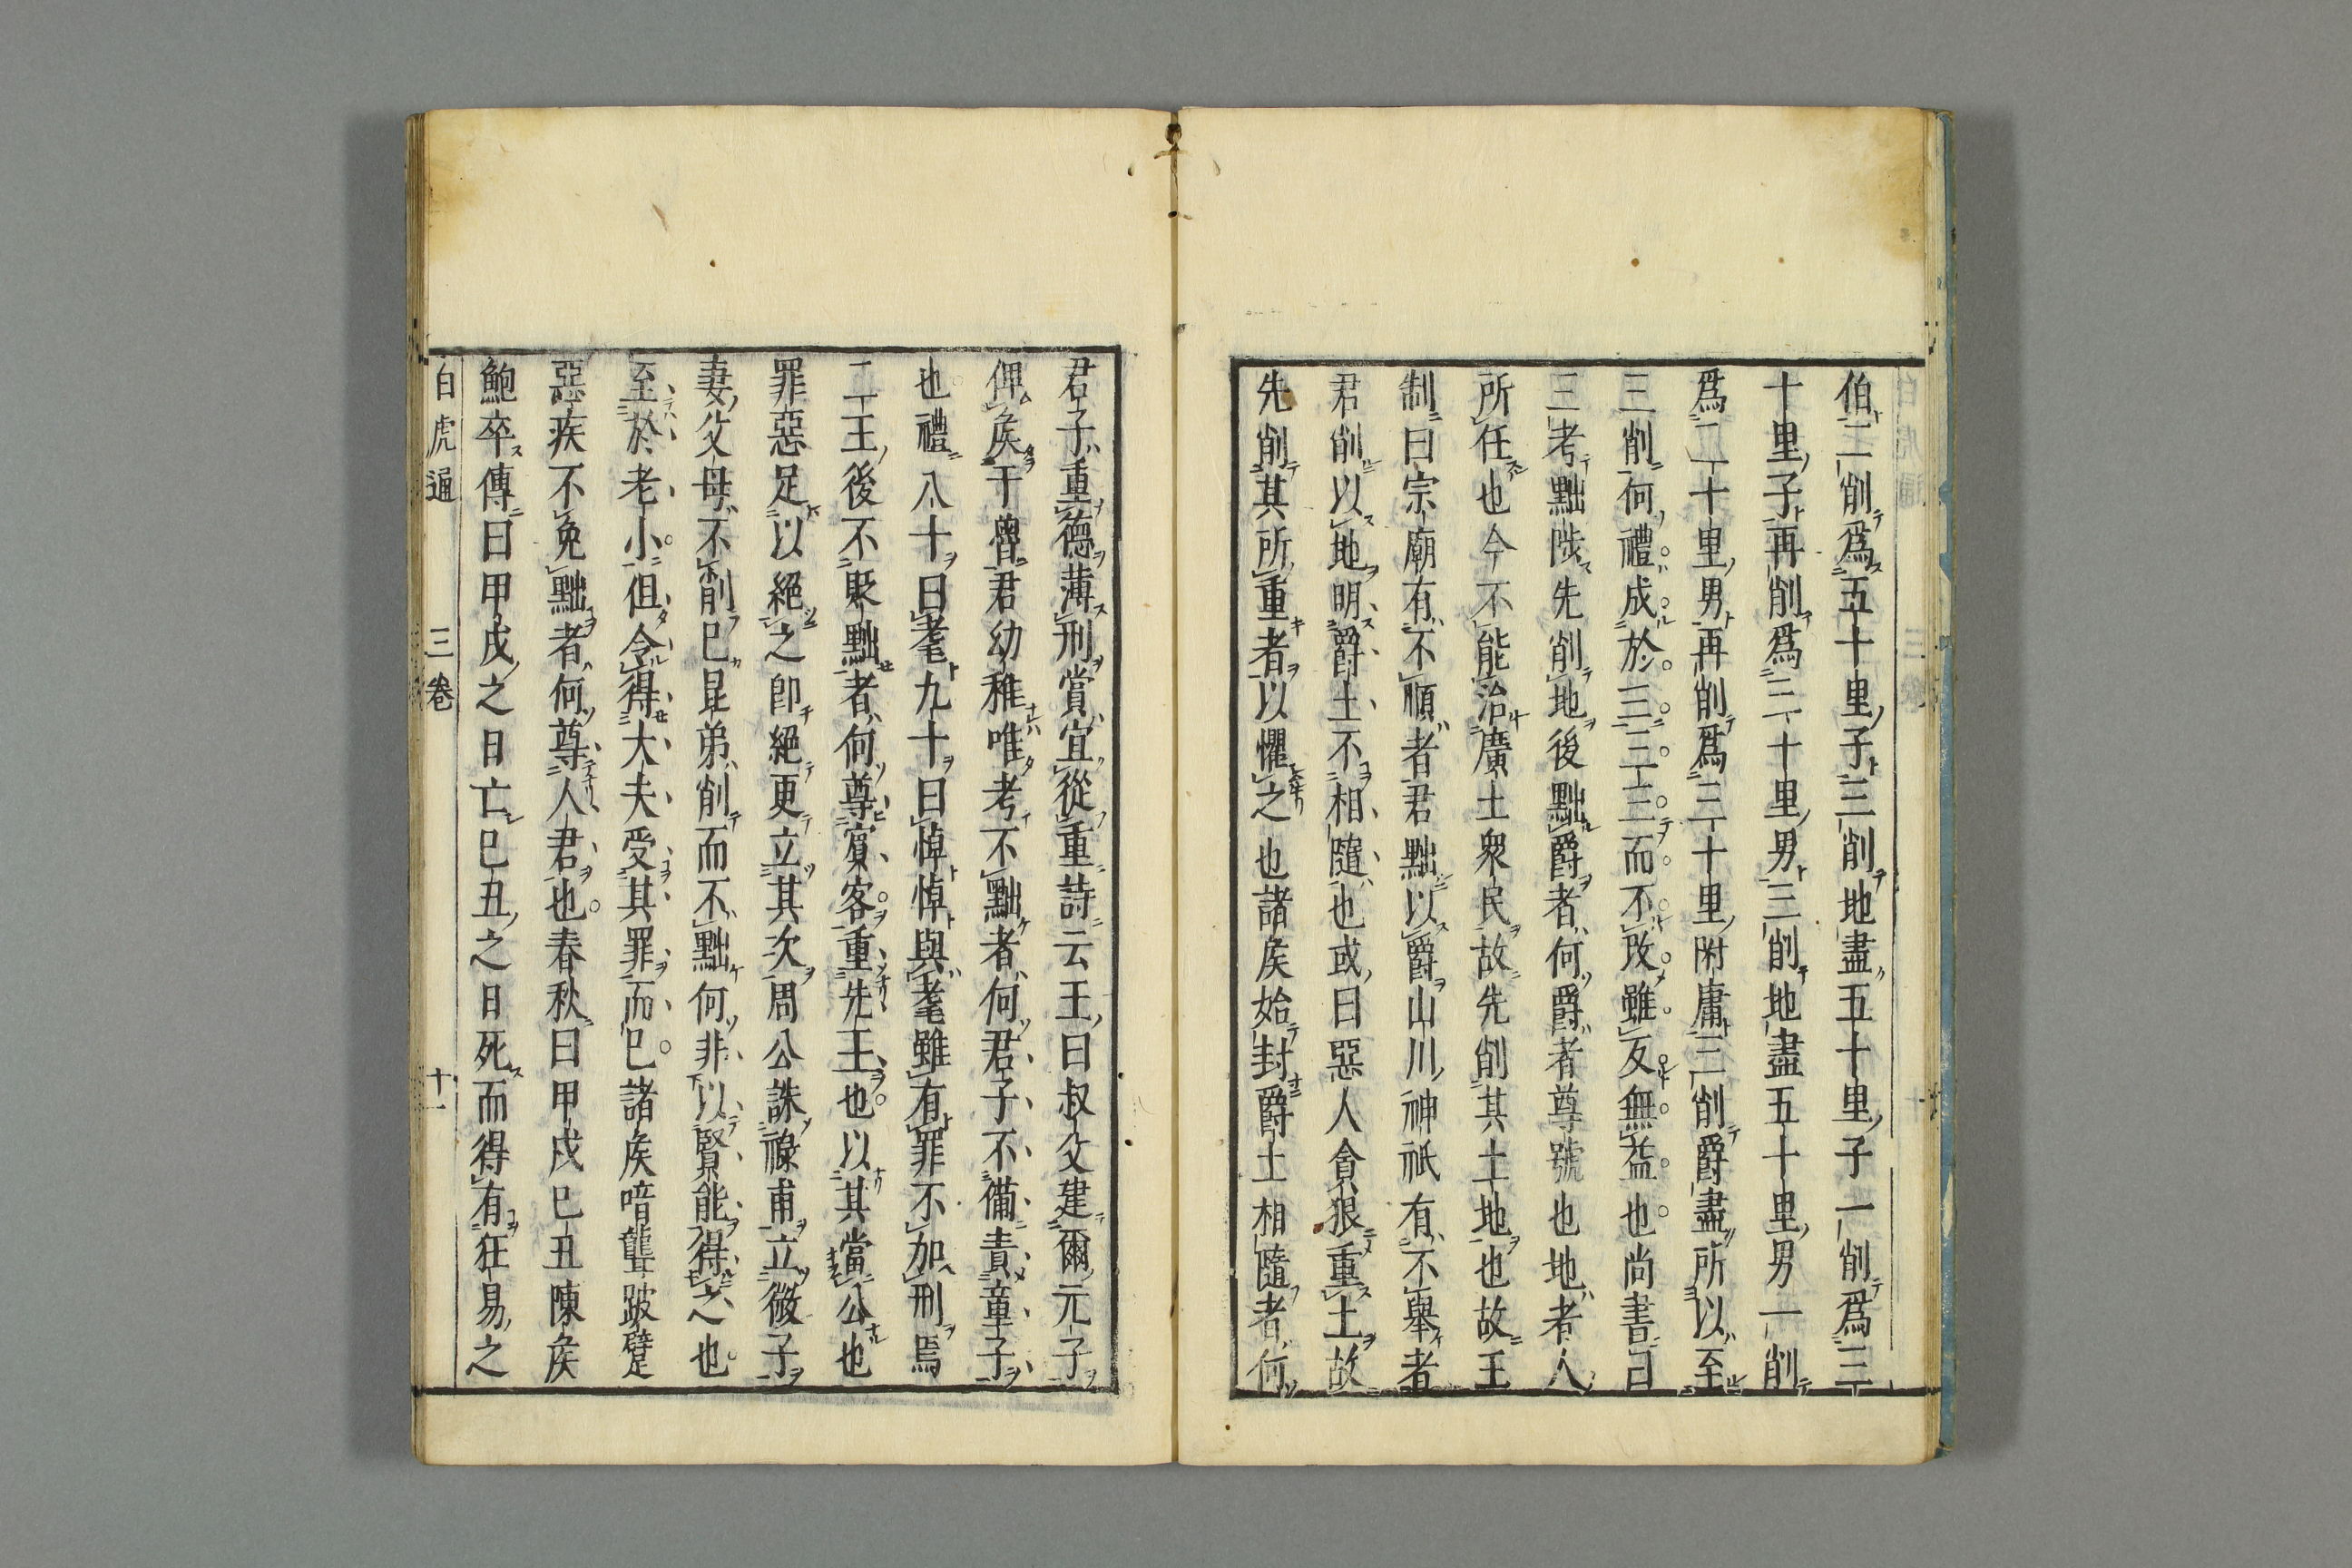 伯二削爲五十里子三削地盡五十里子一削爲三
十里子再削爲三十里男三削地盡五十里男一削
爲二十里男再削爲三十里附庸三削爵盡所以至
三削何禮成於三三三而不改雖反無益也尚書曰
三考黜陟先削地後黜爵者何爵者尊號也地者人
所任也今不能治廣土衆民故先削其土地也故王
制曰宗廟有不順者君黜以爵山川神祇有不舉者
君削以地明爵土不相隨也或曰惡人貪狠重土故
先削其所重者以懼之也諸侯始封爵土相隨者何
君子重德薄刑賞宜從重詩云王曰叔父建爾元子
俾侯于魯君幼稚唯考不黜者何君子不備責童子
也禮八十曰耄九十曰悼悼與耄雖有罪不加刑焉
二王後不貶黜者何尊賓客重先王也以其當公也
罪惡足以絕之即絕更立其次周公誅祿甫立微子
妻父母不削已昆弟削而不黜何非以賢能得之也
至於老小但令得大夫受其罪而已諸侯喑聾跛躄
惡疾不免黜者何尊人君也春秋曰甲戌巳丑陳侯
鮑卒傳曰甲戌之日亡巳丑之日死而得有狂易之
白虎通 三卷 十一